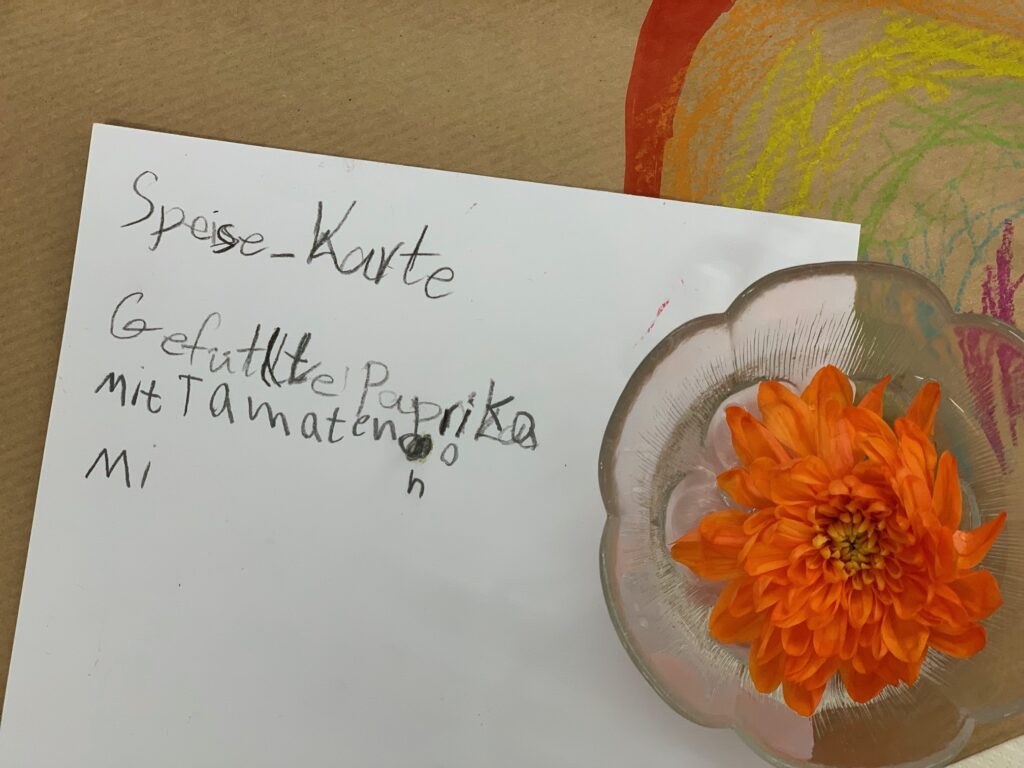 Speise-Karte
Gefutllte Paprika
mit Tamaten o
Mi n